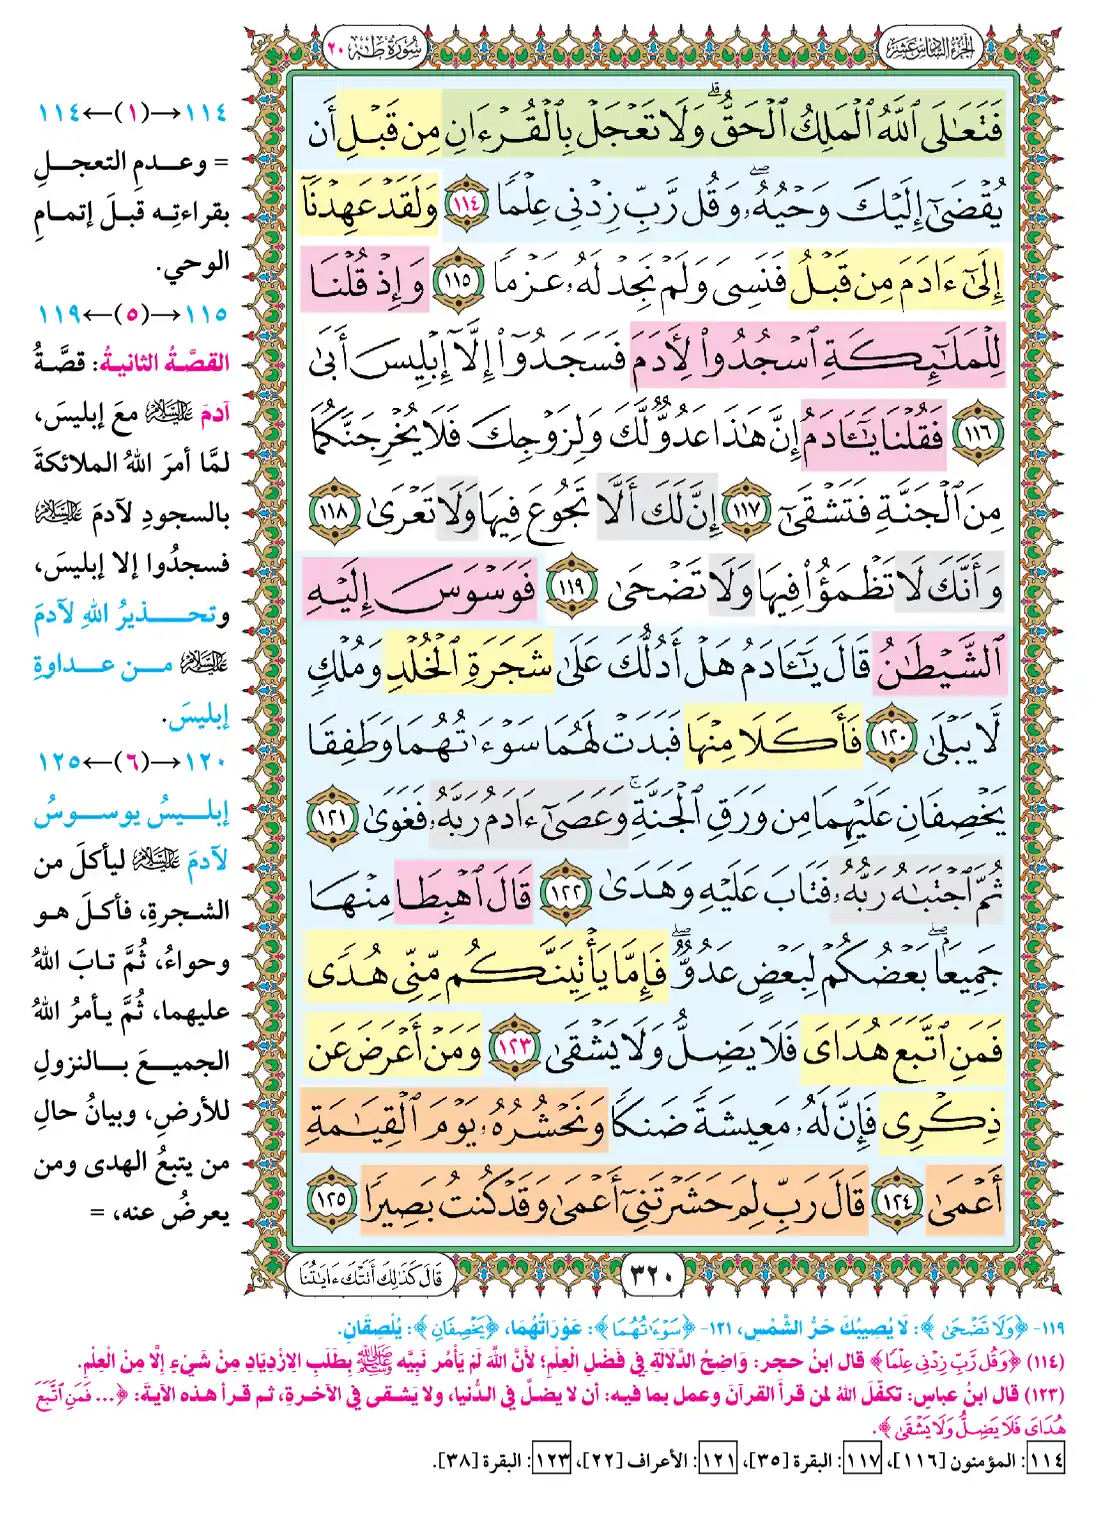 الجزء السادس عشر
سورة طه ٢٠
فَتَعَٰلَى ٱللَّهُ ٱلْمَلِكُ ٱلْحَقُّ ۗ وَلَا تَعْجَلْ بِٱلْقُرْءَانِ مِن قَبْلِ أَن
يُقْضَىٰٓ إِلَيْكَ وَحْيُهُۥ ۖ وَقُل رَّبِّ زِدْنِى عِلْمًا ١١٤ وَلَقَدْ عَهِدْنَآ
إِلَىٰٓ ءَادَمَ مِن قَبْلُ فَنَسِىَ وَلَمْ نَجِدْ لَهُۥ عَزْمًا ١١٥ وَإِذْ قُلْنَا
لِلْمَلَٰٓئِكَةِ ٱسْجُدُوا۟ لِأَدَمَ فَسَجَدُوٓا۟ إِلَّآ إِبْلِيسَ أَبَىٰ
١١٦ فَقُلْنَا يَٰٓـَٔادَمُ إِنَّ هَٰذَا عَدُوٌّ لَّكَ وَلِزَوْجِكَ فَلَا يُخْرِجَنَّكُمَا
مِنَ ٱلْجَنَّةِ فَتَشْقَىٰٓ ١١٧ إِنَّ لَكَ أَلَّا تَجُوعَ فِيهَا وَلَا تَعْرَىٰ ١١٨
وَأَنَّكَ لَا تَظْمَؤُا۟ فِيهَا وَلَا تَضْحَىٰ ١١٩ فَوَسْوَسَ إِلَيْهِ
ٱلشَّيْطَٰنُ قَالَ يَٰٓـَٔادَمُ هَلْ أَدُلُّكَ عَلَىٰ شَجَرَةِ ٱلْخُلْدِ وَمُلْكٍ
لَّا يَبْلَىٰ ١٢٠ فَأَكَلَا مِنْهَا فَبَدَتْ لَهُمَا سَوْءَٰتُهُمَا وَطَفِقَا
يَخْصِفَانِ عَلَيْهِمَا مِن وَرَقِ ٱلْجَنَّةِ ۚ وَعَصَىٰٓ ءَادَمُ رَبَّهُۥ فَغَوَىٰ ١٢١
ثُمَّ ٱجْتَبَٰهُ رَبُّهُۥ فَتَابَ عَلَيْهِ وَهَدَىٰ ١٢٢ قَالَ ٱهْبِطَا مِنْهَا
جَمِيعًۢا ۖ بَعْضُكُمْ لِبَعْضٍ عَدُوٌّ ۖ فَإِمَّا يَأْتِيَنَّكُم مِّنِّى هُدًى
فَمَنِ ٱتَّبَعَ هُدَاىَ فَلَا يَضِلُّ وَلَا يَشْقَىٰ ١٢٣ وَمَنْ أَعْرَضَ عَن
ذِكْرِى فَإِنَّ لَهُۥ مَعِيشَةً ضَنكًا وَنَحْشُرُهُۥ يَوْمَ ٱلْقِيَٰمَةِ
أَعْمَىٰ ١٢٤ قَالَ رَبِّ لِمَ حَشَرْتَنِىٓ أَعْمَىٰ وَقَدْ كُنتُ بَصِيرًا ١٢٥
٣٢٠
قَالَ كَذَٰلِكَ أَتَتْكَ ءَايَٰتُنَا
١١٤→(١)←١١٤
= وعـدمِ التعجلِ
بقراءتِه قبلَ إتمامِ
الوحي.
١١٥→(٥)←١١٩
القصَّةُ الثانيةُ: قصَّةُ
آدمَ عليه السلام معَ إبليسَ،
لمَّا أمرَ اللهُ الملائكةَ
بالسجودِ لآدمَ عليه السلام
فسجدُوا إلا إبليسَ،
وتحذيرُ اللهِ لآدمَ
عليه السلام من عداوةِ
إبليسَ.
١٢٠→(٦)←١٢٥
إبليسُ يوسوسُ
لآدمَ عليه السلام ليأكلَ من
الشجرةِ، فأكلَ هو
وحواءُ، ثُمَّ تابَ اللهُ
عليهما، ثُمَّ يأمرُ اللهُ
الجميعَ بالنزولِ
للأرضِ، وبيانُ حالِ
من يتبعُ الهدى ومن
يعرضُ عنه، =
١١٩- ﴿وَلَا تَضْحَىٰ﴾: لَا يُصِيبُكَ حَرُّ الشَّمْسِ، ١٢١- ﴿سَوْءَٰتُهُمَا﴾: عَوْرَاتُهُمَا، ﴿يَخْصِفَانِ﴾: يُلْصِقَانِ.
(١١٤) ﴿وَقُل رَّبِّ زِدْنِى عِلْمًا﴾ قال ابنُ حجرٍ: وَاضِحُ الدَّلَالَةِ فِي فَضْلِ العِلْمِ؛ لأَنَّ اللَّهَ لَم يَأْمُر نَبِيَّه ﷺ بِطَلَبِ الازْدِيَادِ مِنْ شَيْءٍ إلَّا مِنَ العِلْمِ.
(١٢٣) قال ابنُ عباسٍ: تكفَّلَ اللهُ لمن قرأَ القرآنَ وعمل بما فيه: أن لا يضلَّ في الدُّنيا، ولا يَشقى في الآخرةِ، ثم قرأَ هذه الآيةَ: ﴿... فَمَنِ ٱتَّبَعَ
هُدَاىَ فَلَا يَضِلُّ وَلَا يَشْقَىٰ﴾.
١١٤: المؤمنون [١١٦]، ١١٧: البقرة [٣٥]، ١٢١: الأعراف [٢٢]، ١٢٣: البقرة [٣٨].